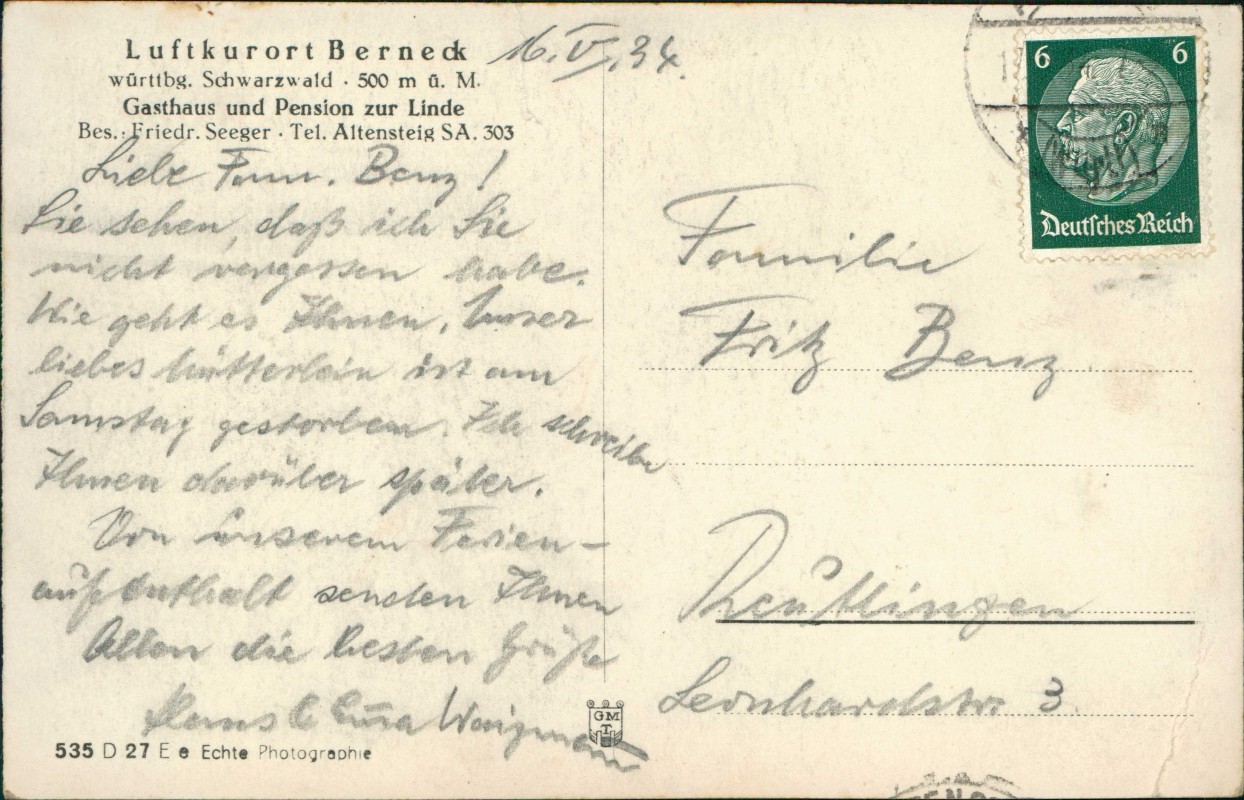 Luftkurort Berneck
württbg. Schwarzwald · 500 m ü. M.
Gasthaus und Pension zur Linde
Bes.: Friedr. Seeger · Tel. Altensteig SA. 303
16. V. 34.
Liebe Fam. Benz!
Sie sehen, daß ich Sie
nicht vergessen habe.
Wie geht es Ihnen. Unser
liebes Mütterlein ist am
Samstag gestorben. Ich schreibe
Ihnen darüber später.
Von unserem Ferien-
aufenthalt senden Ihnen
Allen die besten Grüße
Hans &
535 D 27 E e Echte Photographie
GM
T
6 6
Deutsches Reich
Familie
Fritz Benz
Reutlingen
Leonhardstr. 3